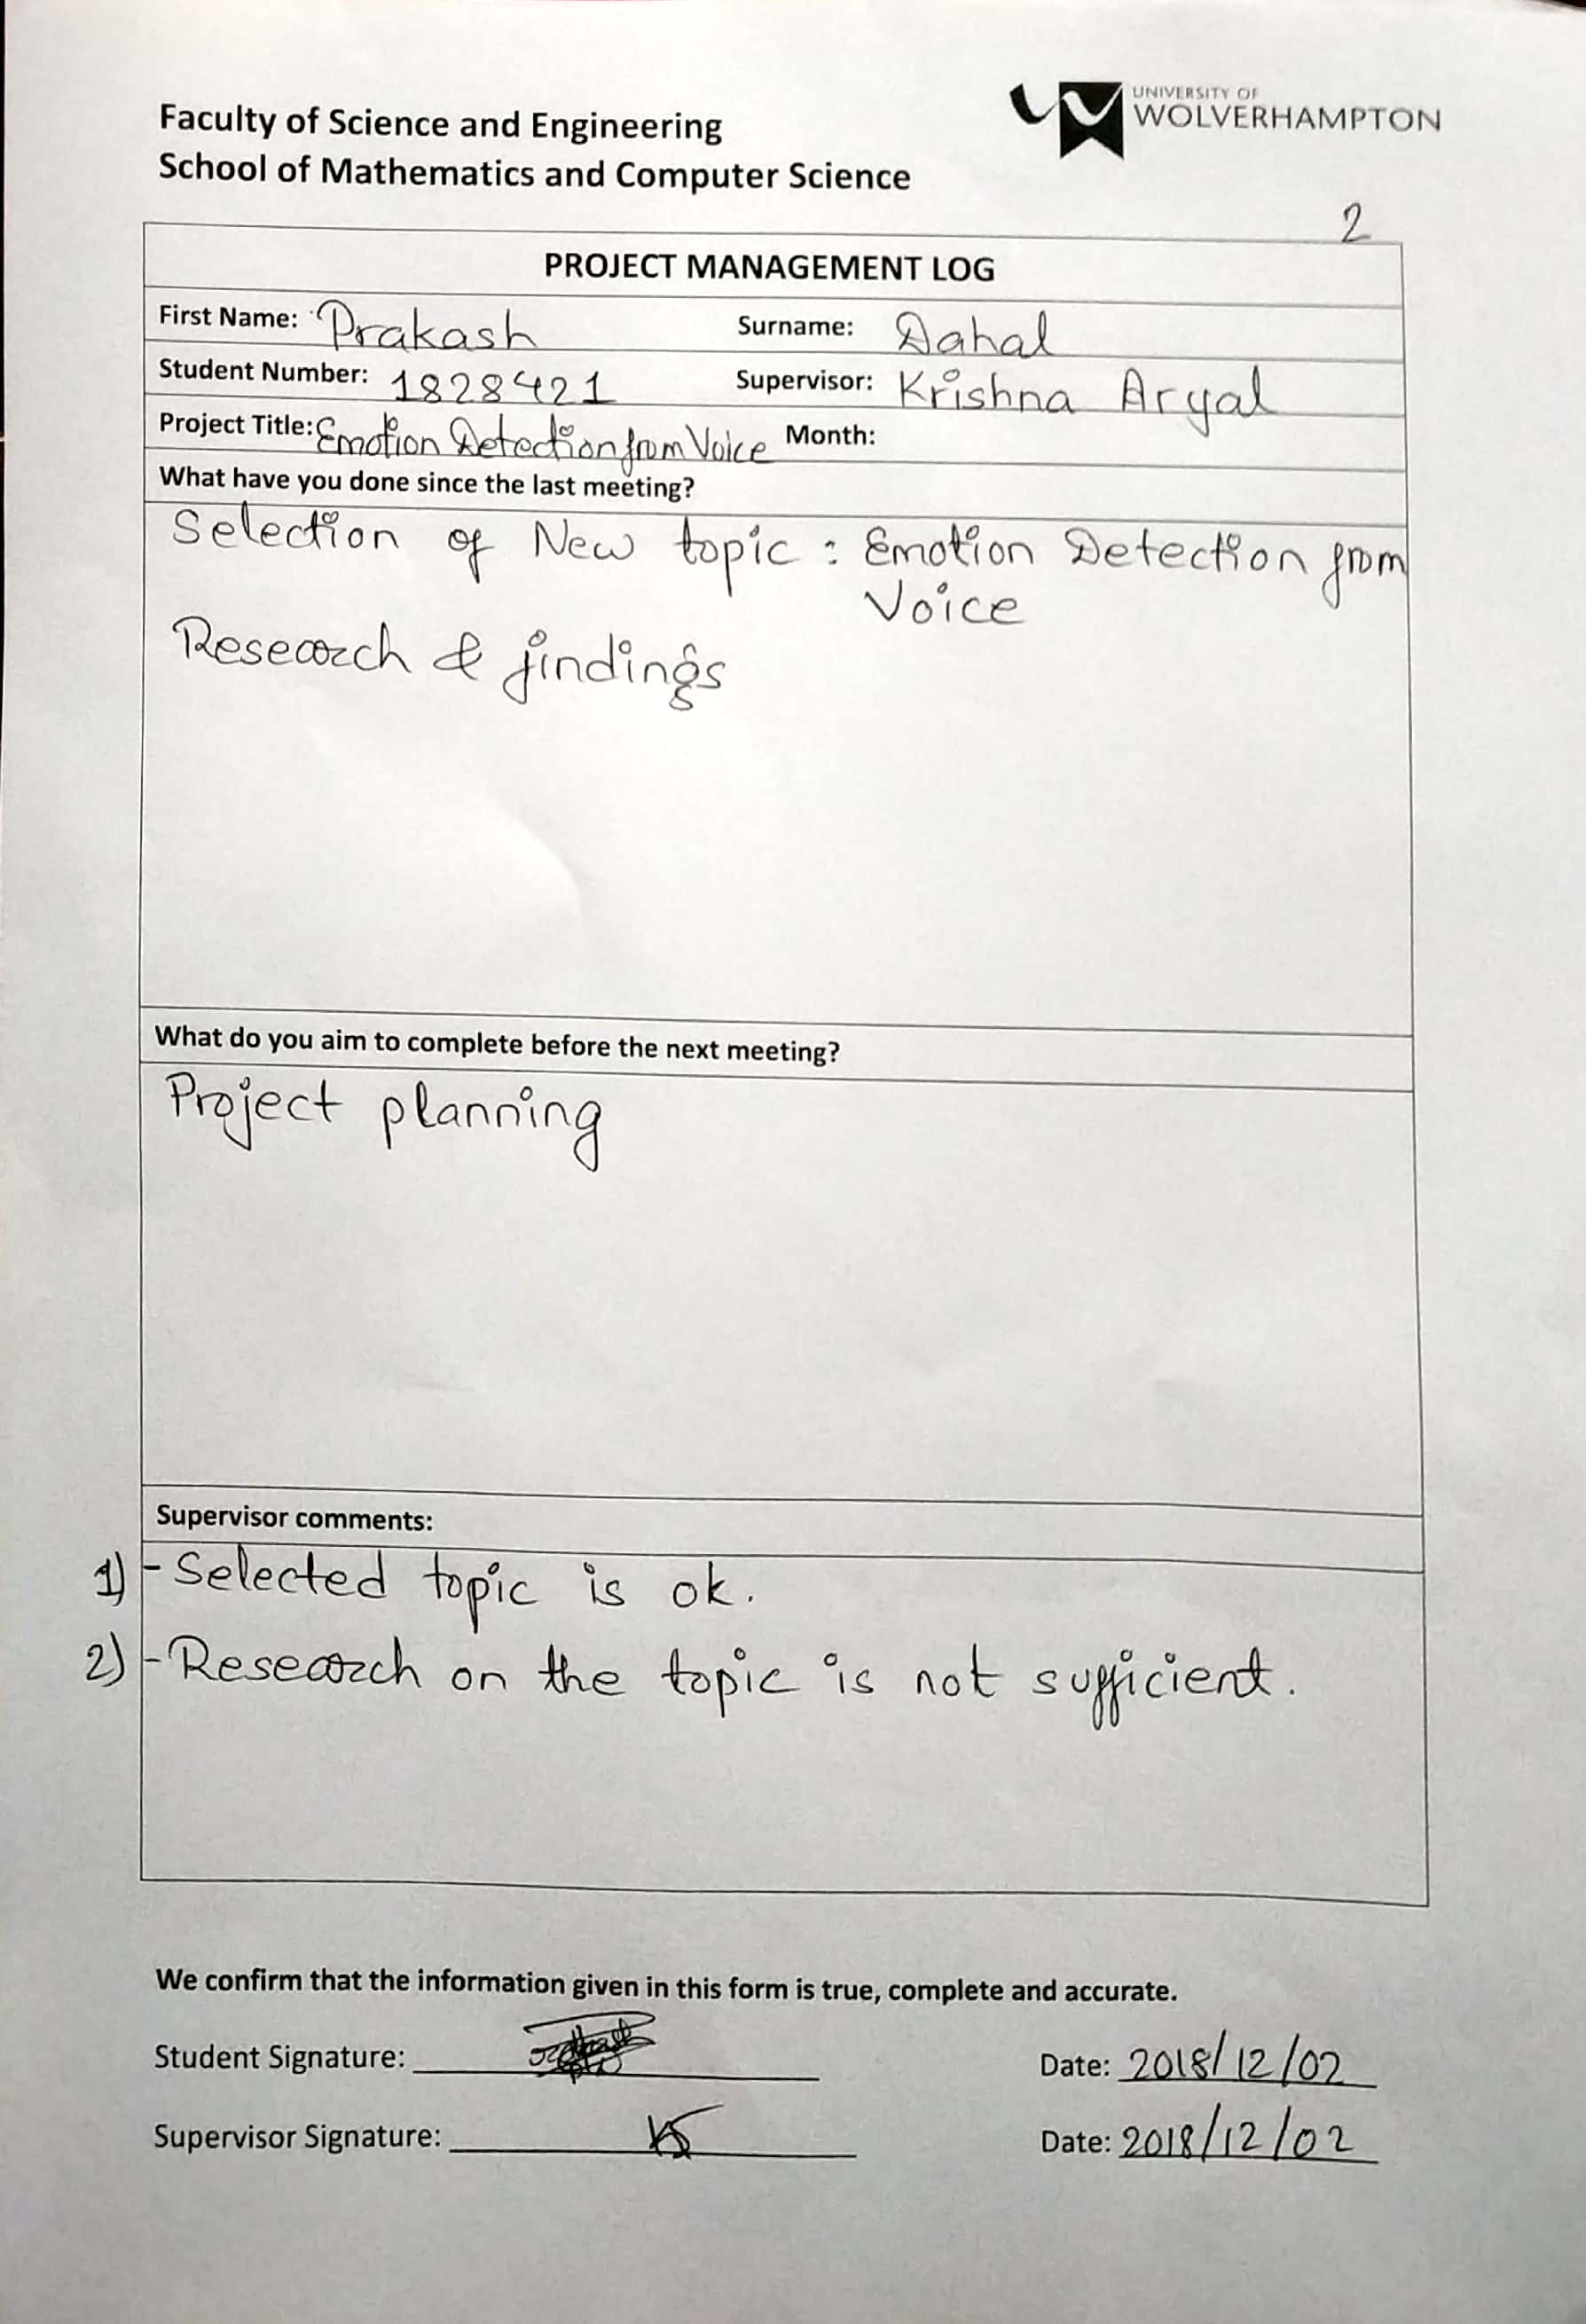 UNIVERSITY OF
WOLVERHAMPTON
Faculty of Science and Engineering
School of Mathematics and Computer Science
2
PROJECT MANAGEMENT LOG
First Name: Prakash Surname: Dahal
Student Number: 1828421 Supervisor: Krishna Aryal
Project Title: Emotion Detection from Voice Month:
What have you done since the last meeting?
Selection of New topic : Emotion Detection from
Voice
Research & findings
What do you aim to complete before the next meeting?
Project planning
Supervisor comments:
1) - Selected topic is ok.
2) - Research on the topic is not sufficient.
We confirm that the information given in this form is true, complete and accurate.
Student Signature: Date: 2018/12/02
Supervisor Signature: Date: 2018/12/02